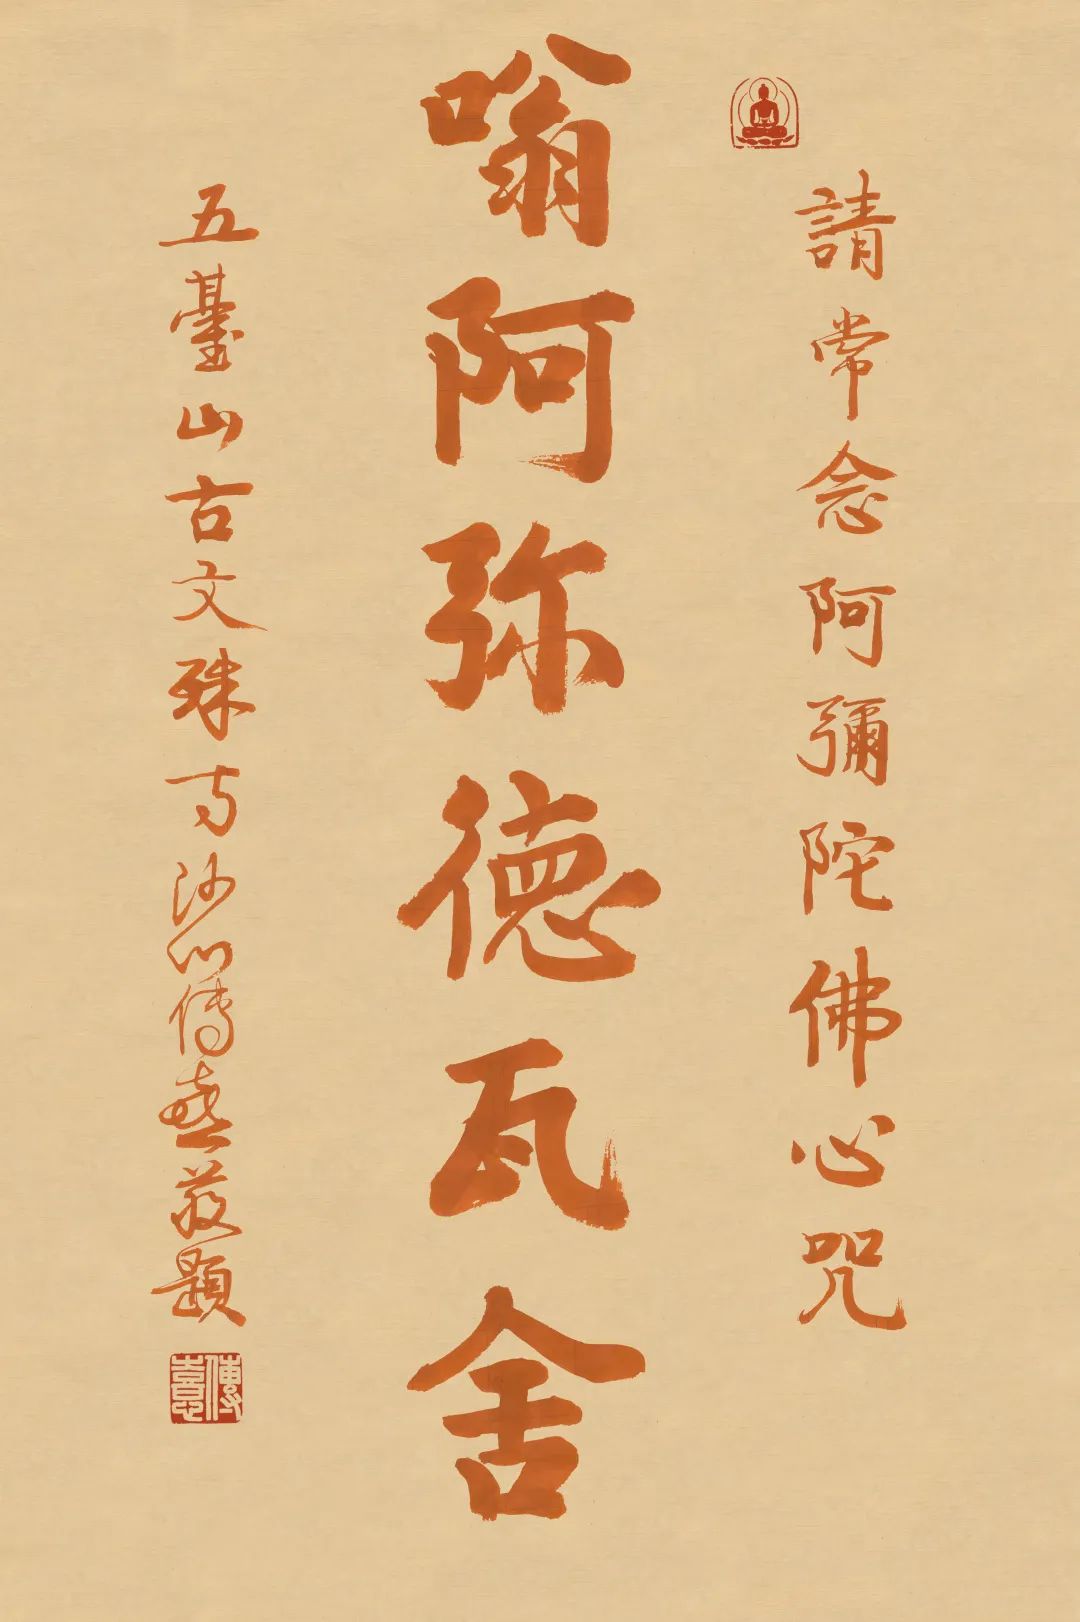 請常念阿彌陀佛心咒
嗡阿弥德瓦舍
五臺山古文殊寺沙门傳憙敬題
傳憙